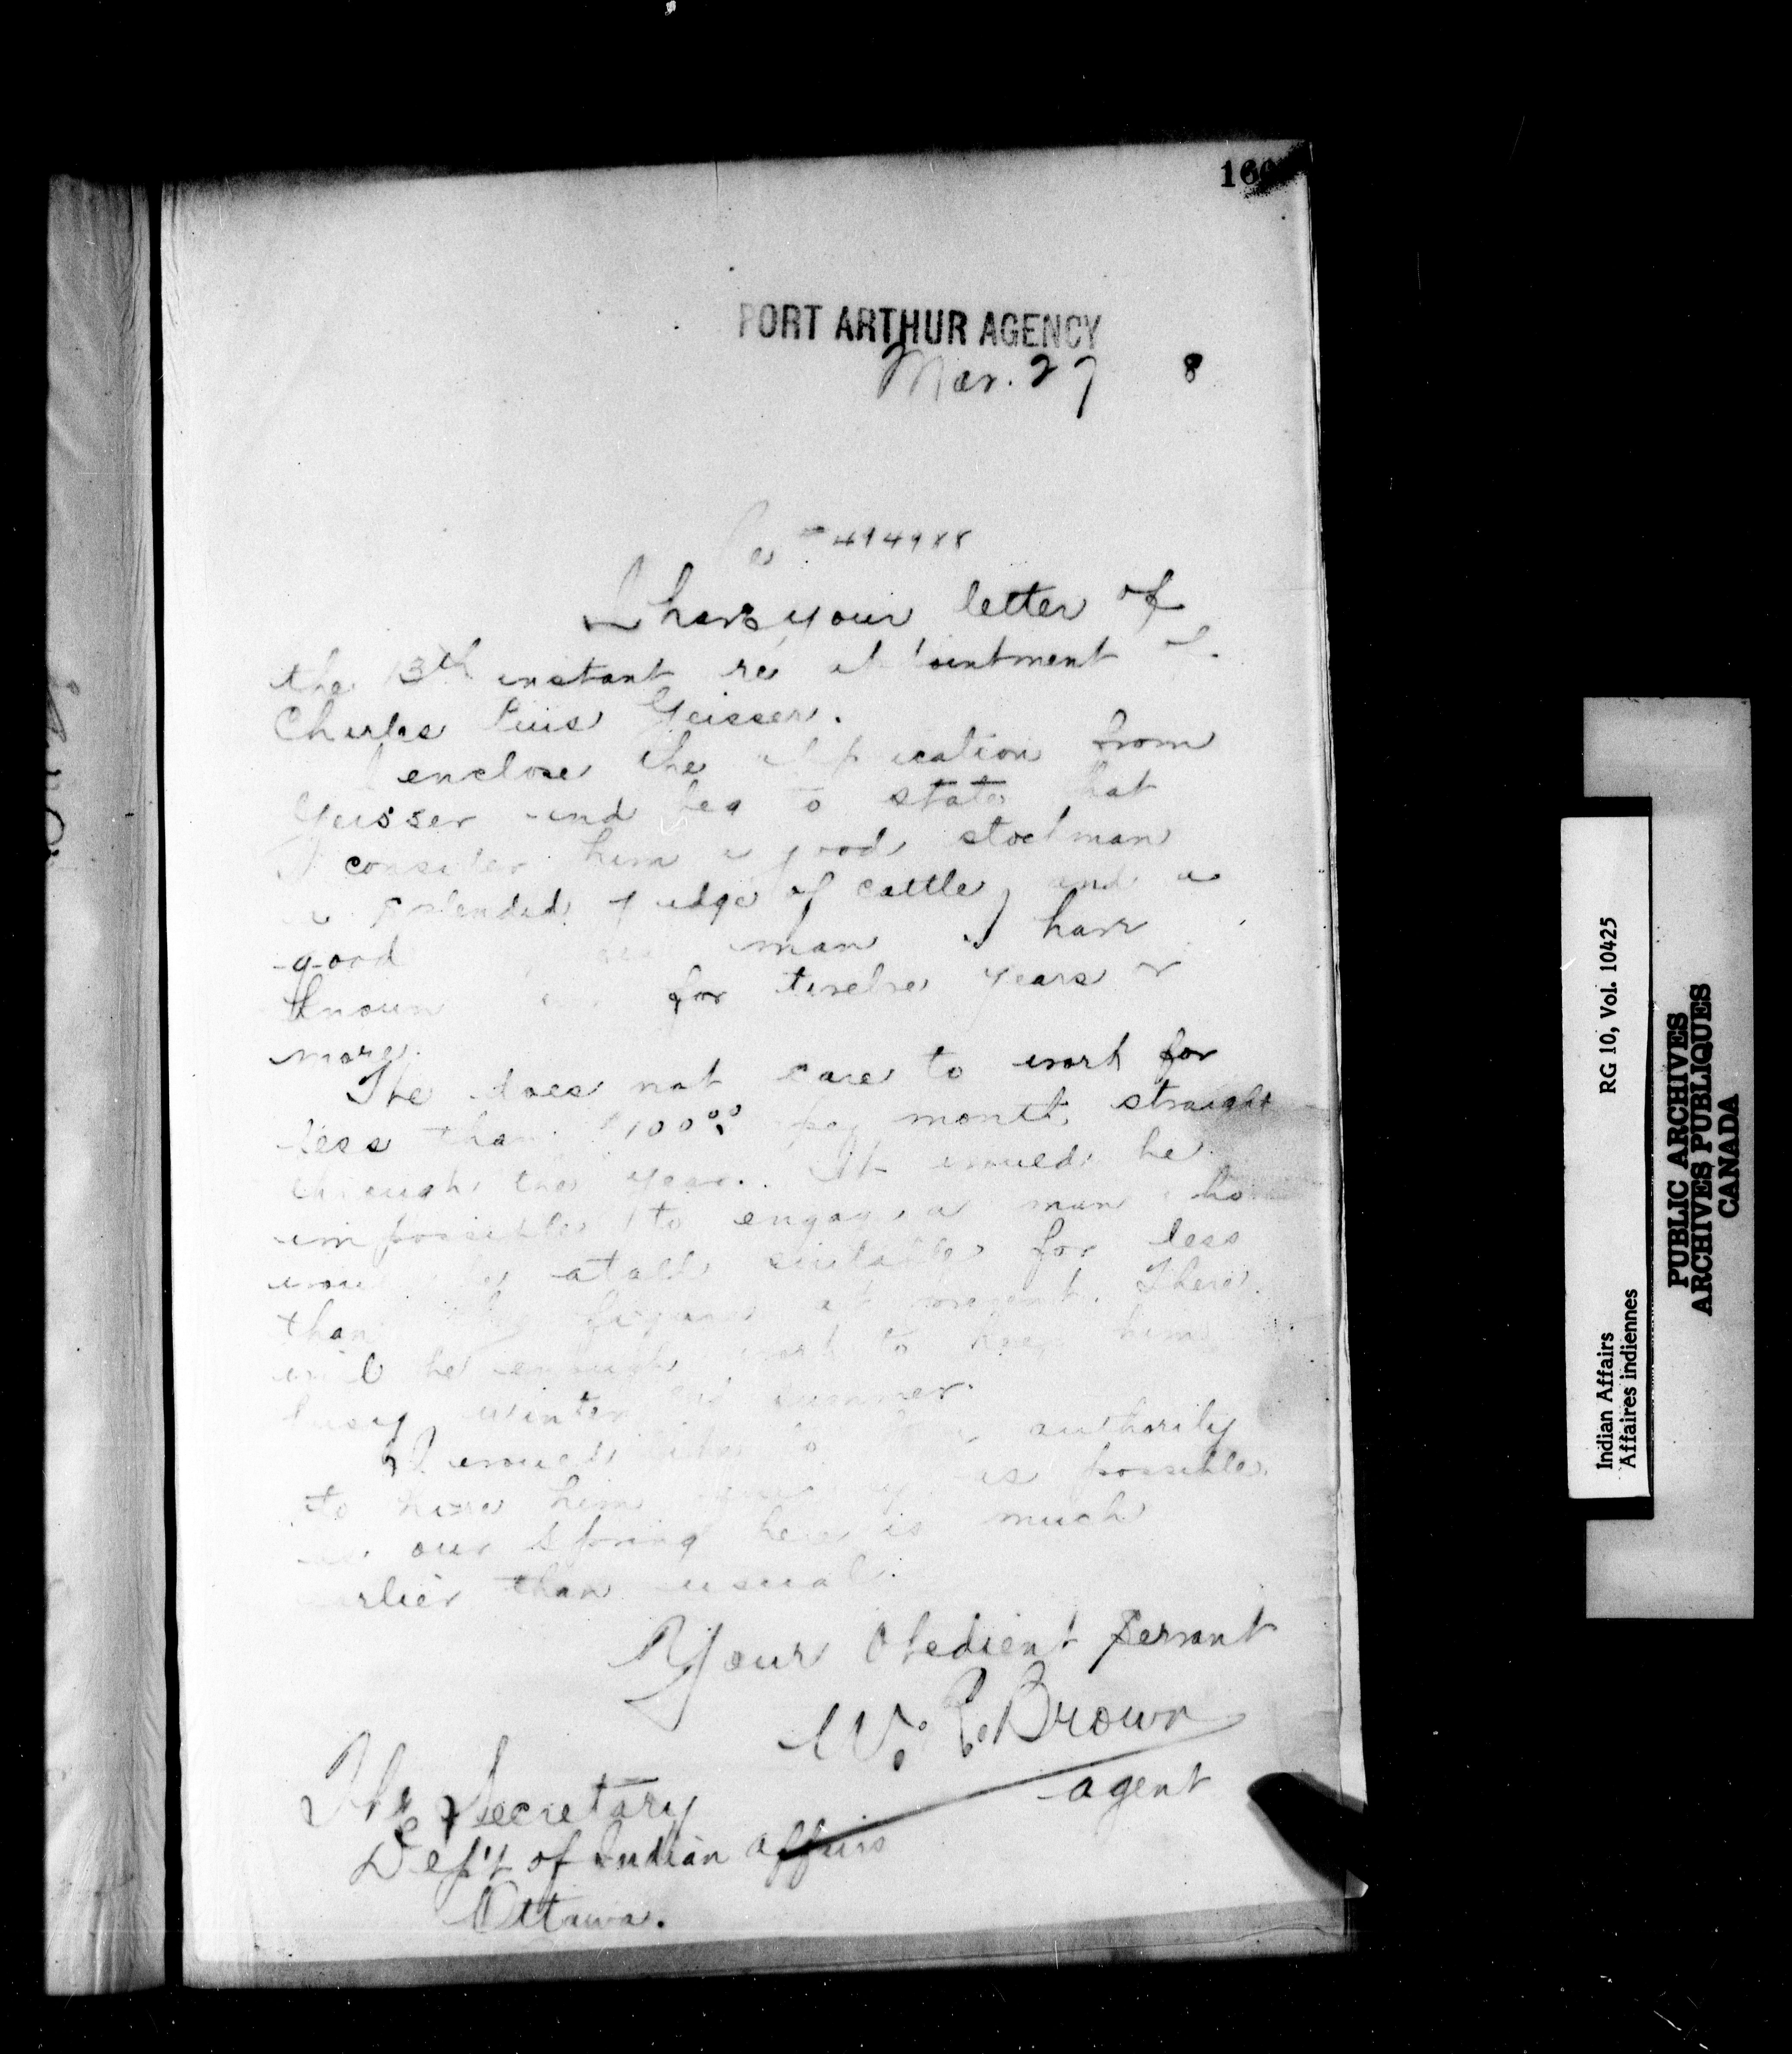 PORT ARTHUR AGENCY
Mar. 27 8
494988
I have your letter of
the 13th instant re
Charles Pius Geisser.
I enclose the from
Geisser and beg to state that
I consider him a good stockman
a splendid judge of cattle, and a
good man I have
known for twelve years or
more.
He does not care to work for
less than $100.00 per month straight
through the year. It would be
impossible to engage a man who
would be atall suitable for less
than figure at present. There
will be enough work to keep him
busy winter and summer.
I would like to authority
to hire him as possible
as our spring here is much
earlier than usual.
Your Obedient Servant
W. R. Brown
agent
The Secretary
Dep't of Indian affairs
Ottawa.
Indian Affairs RG 10, Vol. 10425
Affaires indiennes
PUBLIC ARCHIVES
ARCHIVES PUBLIQUES
CANADA